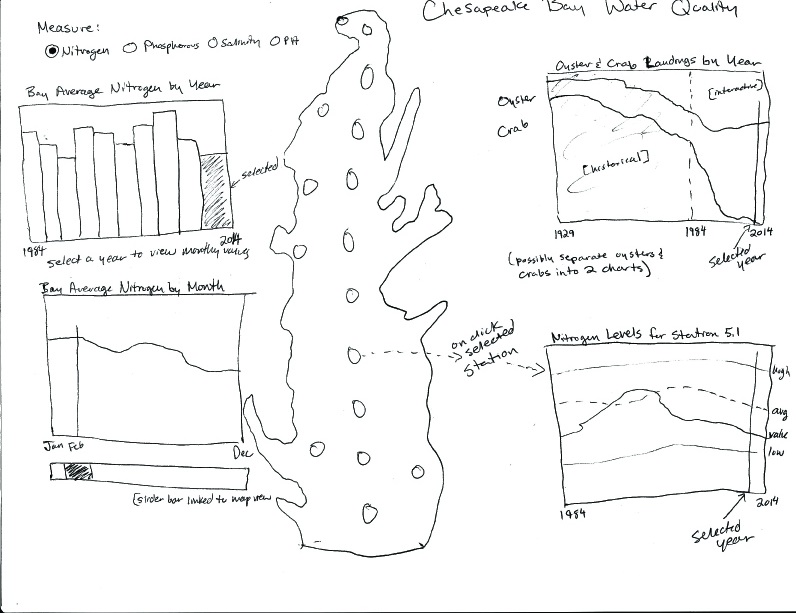 Chesapeake Bay Water Quality
Measure:
Nitrogen Phosphorous Salinity PH
Bay Average Nitrogen by Year
selected
1984 2014
select a year to view monthly values
Bay Average Nitrogen by Month
Jan Feb Dec
[slider bar linked to map view
on click
selected
Station
Oyster & Crab Landings by Year
Oyster
Crab
[interactive]
[historical]
1929 1984 2014
selected
year
(possibly separate oysters &
crabs into 2 charts)
Nitrogen Levels for Station 5.1
high
avg
value
low
1984 2014
selected
year